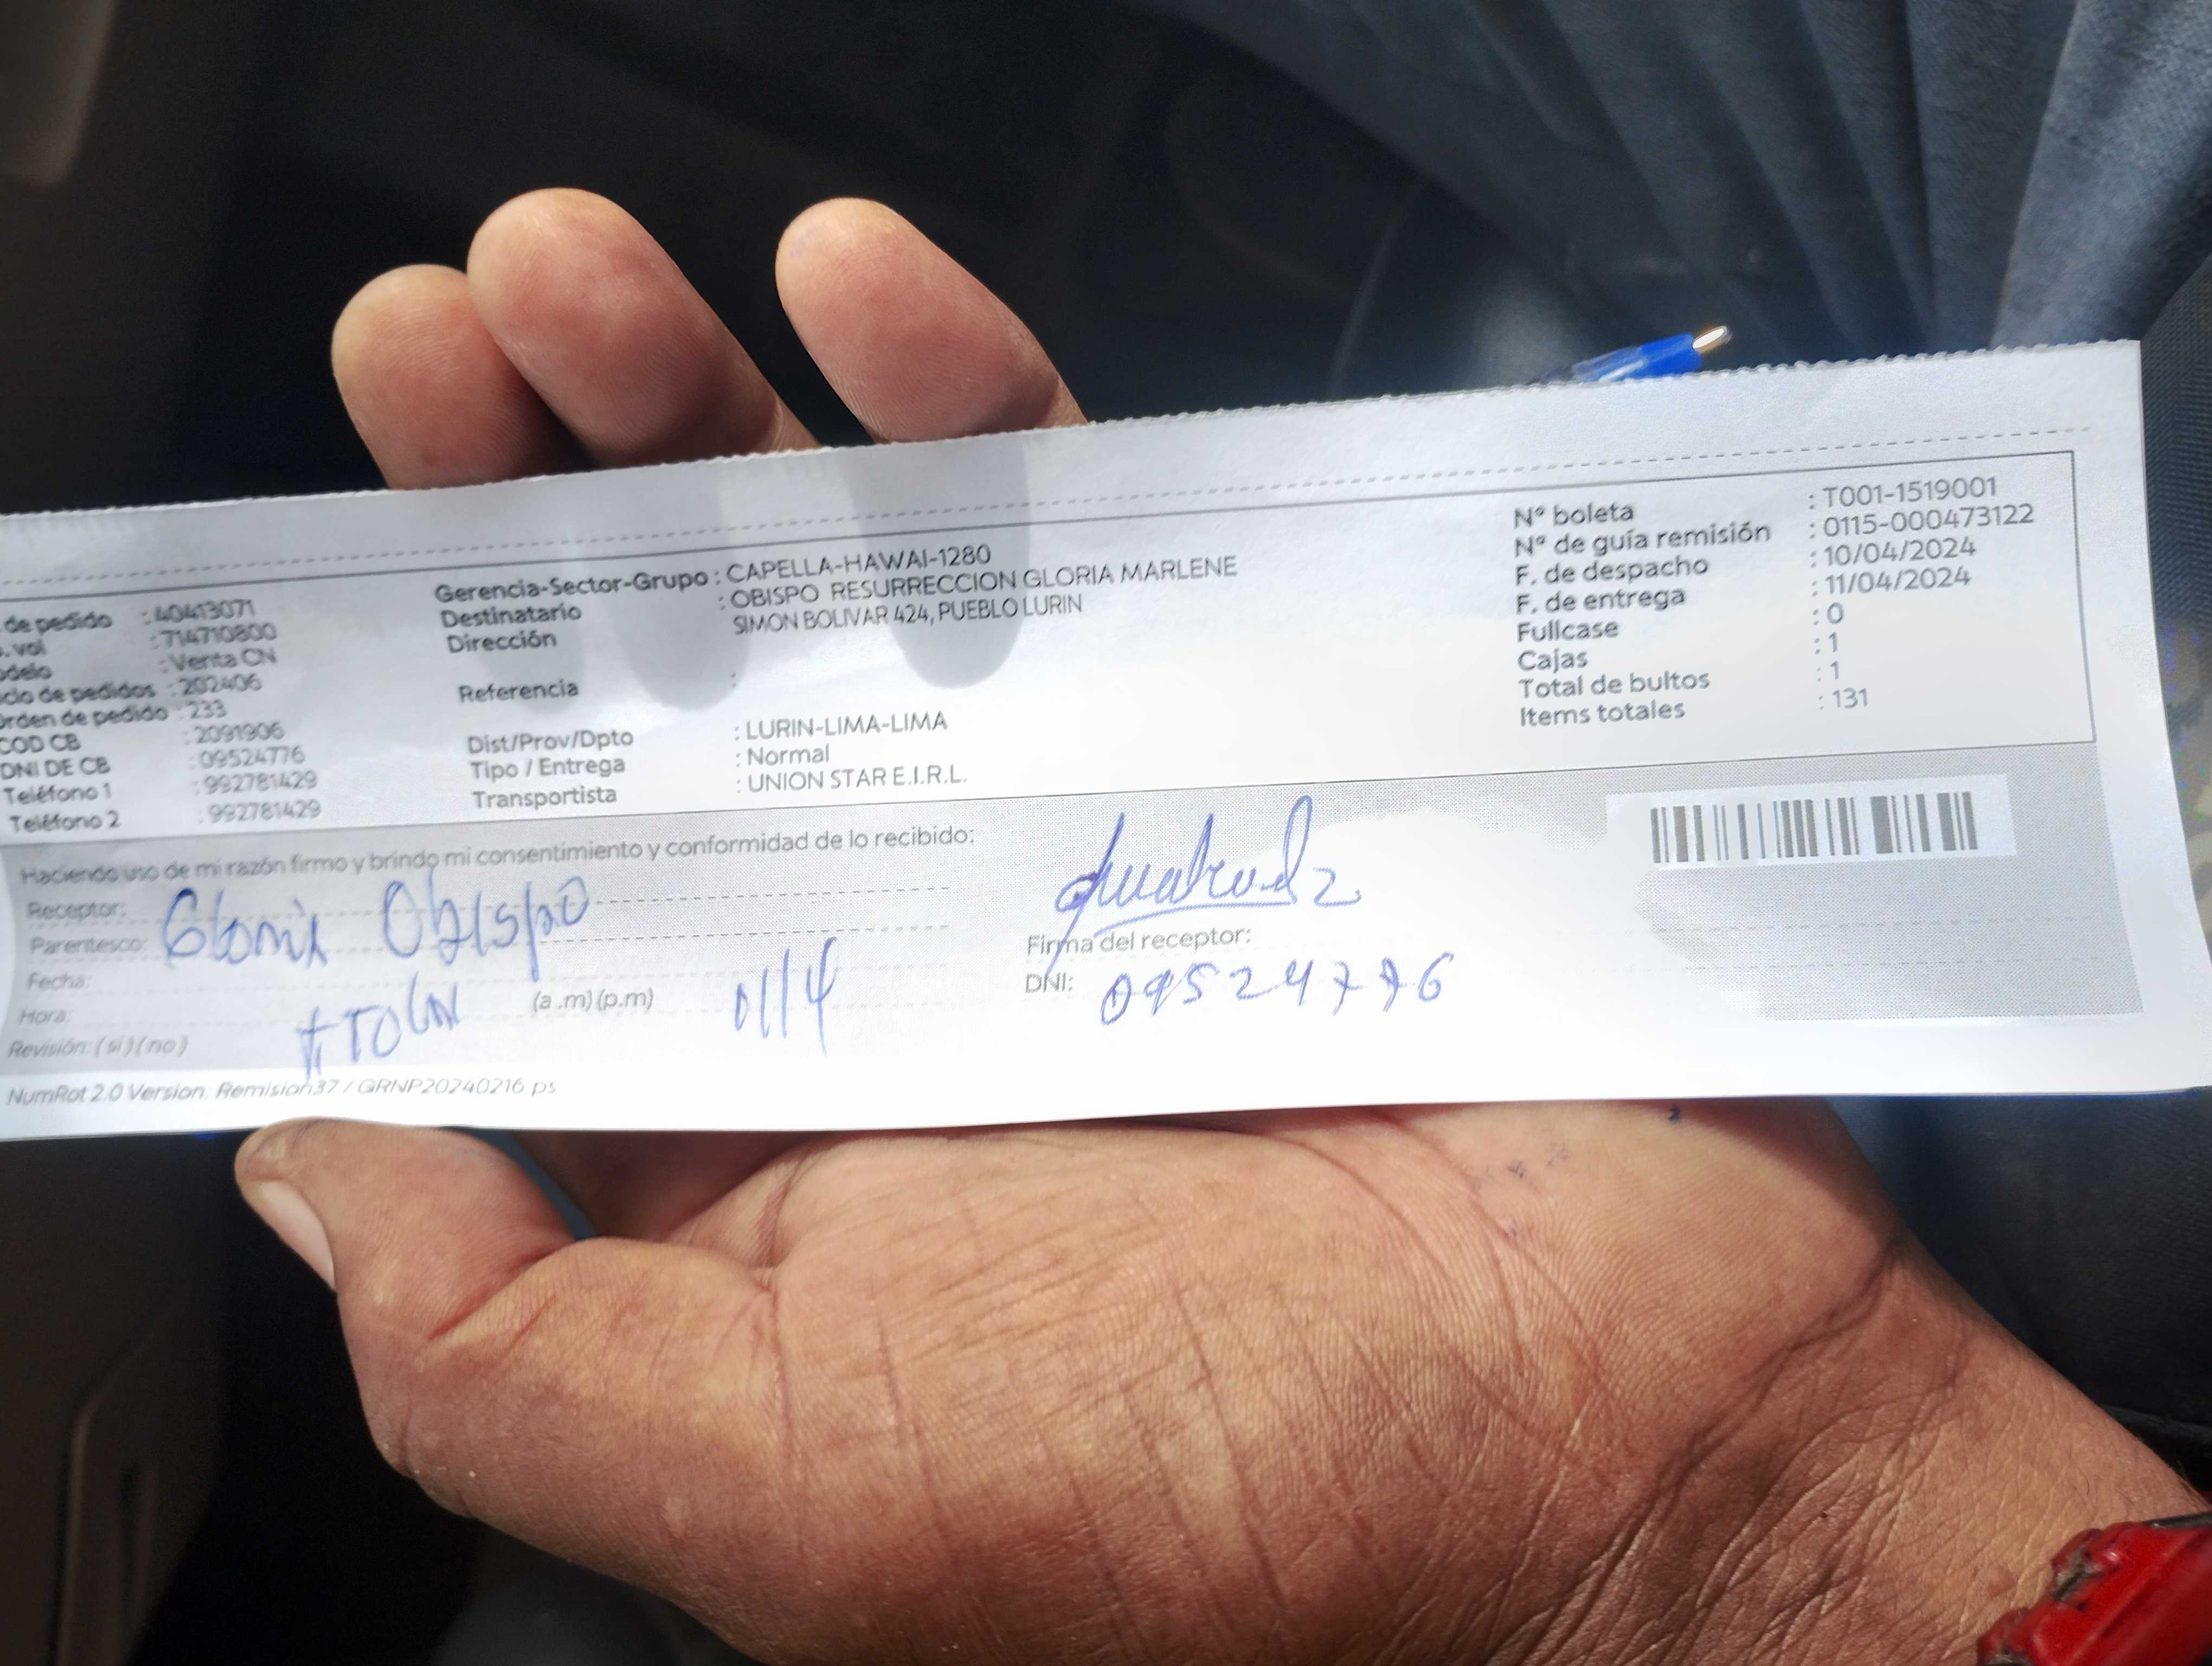 de pedido : 40413071
. vol : 714710800
delo : Venta CN
clo de pedidos : 202406
Orden de pedido : 233
COD CB : 2091906
DNI DE CB : 09524776
Teléfono 1 : 992781429
Teléfono 2 : 992781429
Gerencia-Sector-Grupo : CAPELLA-HAWAI-1280
Destinatario : OBISPO RESURRECCION GLORIA MARLENE
Dirección SIMON BOLIVAR 424, PUEBLO LURIN
Referencia :
Dist/Prov/Dpto : LURIN-LIMA-LIMA
Tipo / Entrega : Normal
Transportista : UNION STAR E.I.R.L.
Nº boleta : T001-1519001
Nº de guía remisión : 0115-000473122
F. de despacho : 10/04/2024
F. de entrega : 11/04/2024
Fullcase : 0
Cajas : 1
Total de bultos : 1
Items totales : 131
Haciendo uso de mi razón firmo y brindo mi consentimiento y conformidad de lo recibido:
Receptor: Gloria Obispo
Parentesco:
Fecha:
Hora: (a.m) (p.m)
Revisión: ( si ) ( no )
Firma del receptor:
DNI: 09524776
NumRot 2.0 Version: Remision37 / GRNP20240216.ps